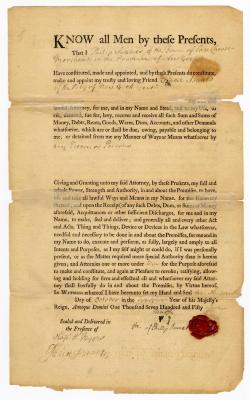 KNOW all Men by these Presents,
That I
Merchant in the Province of New York
Have constituted, made and appointed, and by these Presents do constitute,
make and appoint my trusty and loving Friend
of the City of New York
lawful Attorney, for me, and in my Name and Stead, and to my Use, to
ask, demand, sue for, levy, recover and receive all such Sum and Sums of
Money, Debts, Rents, Goods, Wares, Dues, Accounts, and other Demands
whatsoever, which are or shall be due, owing, payable and belonging to
me, or detained from me any Manner of Ways or Means whatsoever by
any Person or Persons
Giving and Granting unto my said Attorney, by these Presents, my full and
whole Power, Strength and Authority, in and about the Premises, to have,
use and take all lawful Ways and Means in my Name, for the Recovery
thereof; and upon the Receipt of any such Debts, Dues, or Sums of Money
aforesaid, Acquittances or other sufficient Discharges, for me and in my
Name, to make, seal and deliver; and generally all and every other Act
and Acts, Thing and Things, Device or Devices in the Law whatsoever,
needful and necessary to be done in and about the Premises, for me and in
my Name to do, execute and perform, as fully, largely and amply to all
Intents and Purposes, as I my self might or could do, if I was personally
present, or as the Matter required more special Authority than is herein
given; and Attornies one or more under for the Purpose aforesaid
to make and constitute, and again at Pleasure to revoke; ratifying, allow-
ing and holding for firm and effectual all and whatsoever my said Attor-
ney shall lawfully do in and about the Premises, by Virtue hereof.
In Witness whereof I have hereunto set my Hand and Seal the
Day of October in the Year of his Majesty's
Reign, Annoque Domini One Thousand Seven Hundred and Fifty
Sealed and Delivered in
the Presence of